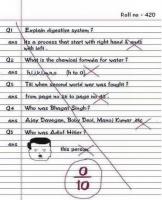 Roll no - 420
Q1 Explain digestive system ?
Ans Its a process that start with right hand & ends
with left.
Q2 What is the chemical formula for water ?
Ans h,i,j,k,l,m,n,o (h to o)
Q3 Till when second world war was fought ?
Ans from page no 25 to page no
Q4 Who was Bhagat Singh ?
Ans Ajay Devegan, Boby Deol, Manoj Kumar etc
Q5 Who was Adolf Hitler ?
Ans this person
0
10